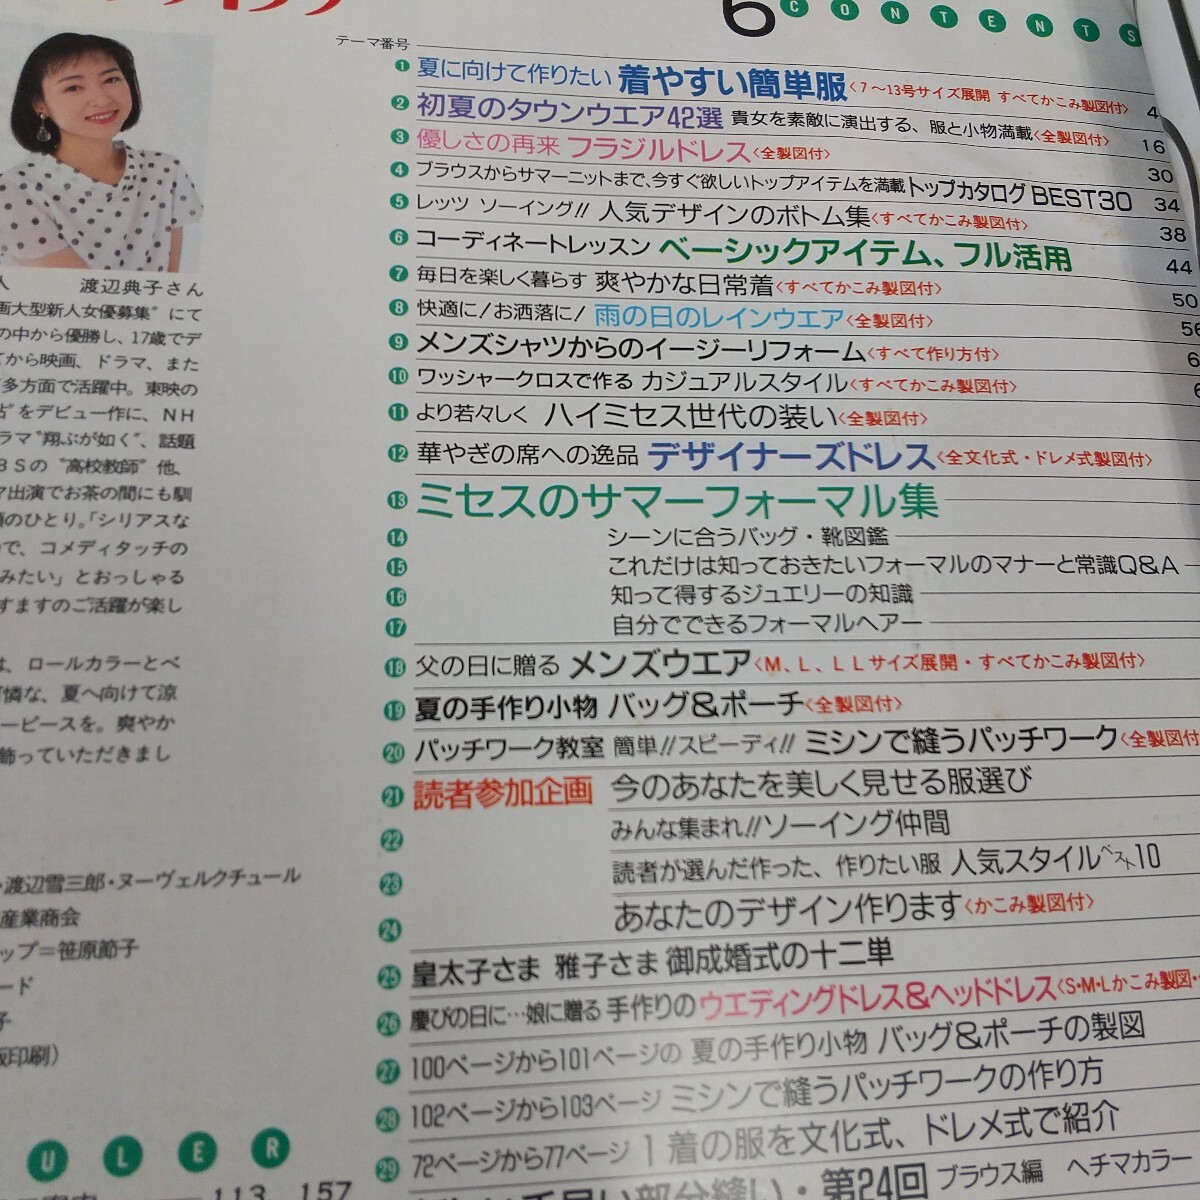 6 CONTENTS
テーマ番号
1 夏に向けて作りたい 着やすい簡単服〈7〜13号サイズ展開 すべてかこみ製図付〉
2 初夏のタウンウエア42選 貴女を素敵に演出する、服と小物満載〈全製図付〉 16
3 優しさの再来 フラジルドレス〈全製図付〉 30
4 ブラウスからサマーニットまで、今すぐ欲しいトップアイテムを満載 トップカタログ BEST30 34
5 レッツ ソーイング!! 人気デザインのボトム集〈すべてかこみ製図付〉 38
6 コーディネートレッスン ベーシックアイテム、フル活用 44
7 毎日を楽しく暮らす 爽やかな日常着〈すべてかこみ製図付〉 50
8 快適に!お洒落に! 雨の日のレインウエア〈全製図付〉 56
9 メンズシャツからのイージーリフォーム〈すべて作り方付〉
10 ワッシャークロスで作る カジュアルスタイル〈すべてかこみ製図付〉
11 より若々しく ハイミセス世代の装い〈全製図付〉
12 華やぎの席への逸品 デザイナーズドレス〈全文化式・ドレメ式製図付〉
13 ミセスのサマーフォーマル集
14 シーンに合うバッグ・靴図鑑
15 これだけは知っておきたいフォーマルのマナーと常識Q&A
16 知って得するジュエリーの知識
17 自分でできるフォーマルヘアー
18 父の日に贈る メンズウエア〈M、L、LLサイズ展開・すべてかこみ製図付〉
19 夏の手作り小物 バッグ&ポーチ〈全製図付〉
20 パッチワーク教室 簡単!!スピーディ!! ミシンで縫うパッチワーク〈全製図付
21 読者参加企画 今のあなたを美しく見せる服選び
22 みんな集まれ!!ソーイング仲間
23 読者が選んだ作った、作りたい服 人気スタイルベスト10
24 あなたのデザイン作ります〈かこみ製図付〉
25 皇太子さま 雅子さま 御成婚式の十二単
26 慶びの日に…娘に贈る 手作りの ウエディングドレス&ヘッドドレス〈S・M・Lかこみ製図・
27 100ページから101ページの 夏の手作り小物 バッグ&ポーチの製図
28 102ページから103ページ ミシンで縫うパッチワークの作り方
29 72ページから77ページ 1着の服を文化式、ドレメ式で紹介
部分縫い・第24回 ブラウス編 ヘチマカラー
人 渡辺典子さん
画大型新人女優募集"にて
の中から優勝し、17歳でデ
てから映画、ドラマ、また
多方面で活躍中。東映の
"をデビュー作に、NH
ラマ"翔ぶが如く"、話題
BSの"高校教師"他、
マ出演でお茶の間にも馴
のひとり。「シリアスな
で、コメディタッチの
みたい」とおっしゃる
すますのご活躍が楽し
は、ロールカラーとペ
憐な、夏へ向けて涼
ーピースを。爽やか
飾っていただきまし
・渡辺雪三郎・ヌーヴェルクチュール
産業商会
ップ=笹原節子
ード
子
版印刷)
ULER
113、157